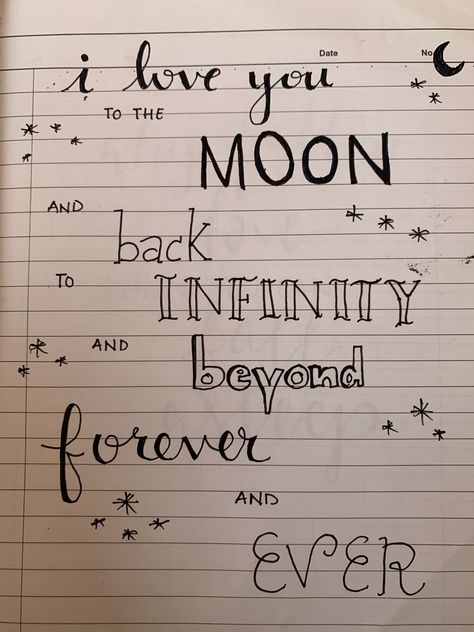 Date No.
i love you
TO THE
MOON
AND
back
TO INFINITY
AND
beyond
forever
AND
EVER